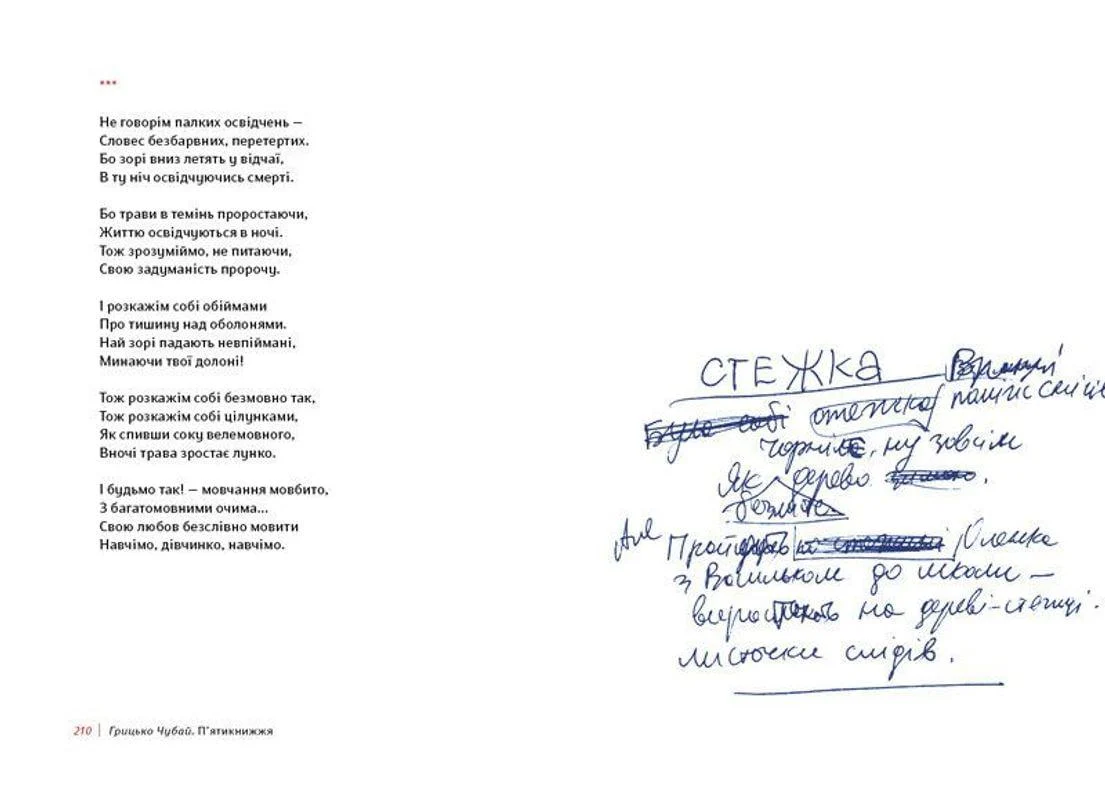 ***
Не говорім палких освідчень —
Словес безбарвних, перетертих.
Бо зорі вниз летять у відчаї,
В ту ніч освідчуючись смерті.
Бо трави в темінь проростаючи,
Життю освідчуються в ночі.
Тож зрозуміймо, не питаючи,
Свою задуманість пророчу.
І розкажім собі обіймами
Про тишину над оболонями.
Най зорі падають невпіймані,
Минаючи твої долоні!
Тож розкажім собі безмовно так,
Тож розкажім собі цілунками,
Як спивши соку велемовного,
Вночі трава зростає лунко.
І будьмо так! — мовчання мовбито,
З багатомовними очима...
Свою любов безслівно мовити
Навчімо, дівчинко, навчімо.
210 | Грицько Чубай. П'ятикнижжя
СТЕЖКА
Була собі стежка
чорна, ну зовсім
Як дерево
безлисте
Але Пройдуть Оленка
з Васильком до школи —
виростають на дереві-стежці.
листочки слідів.